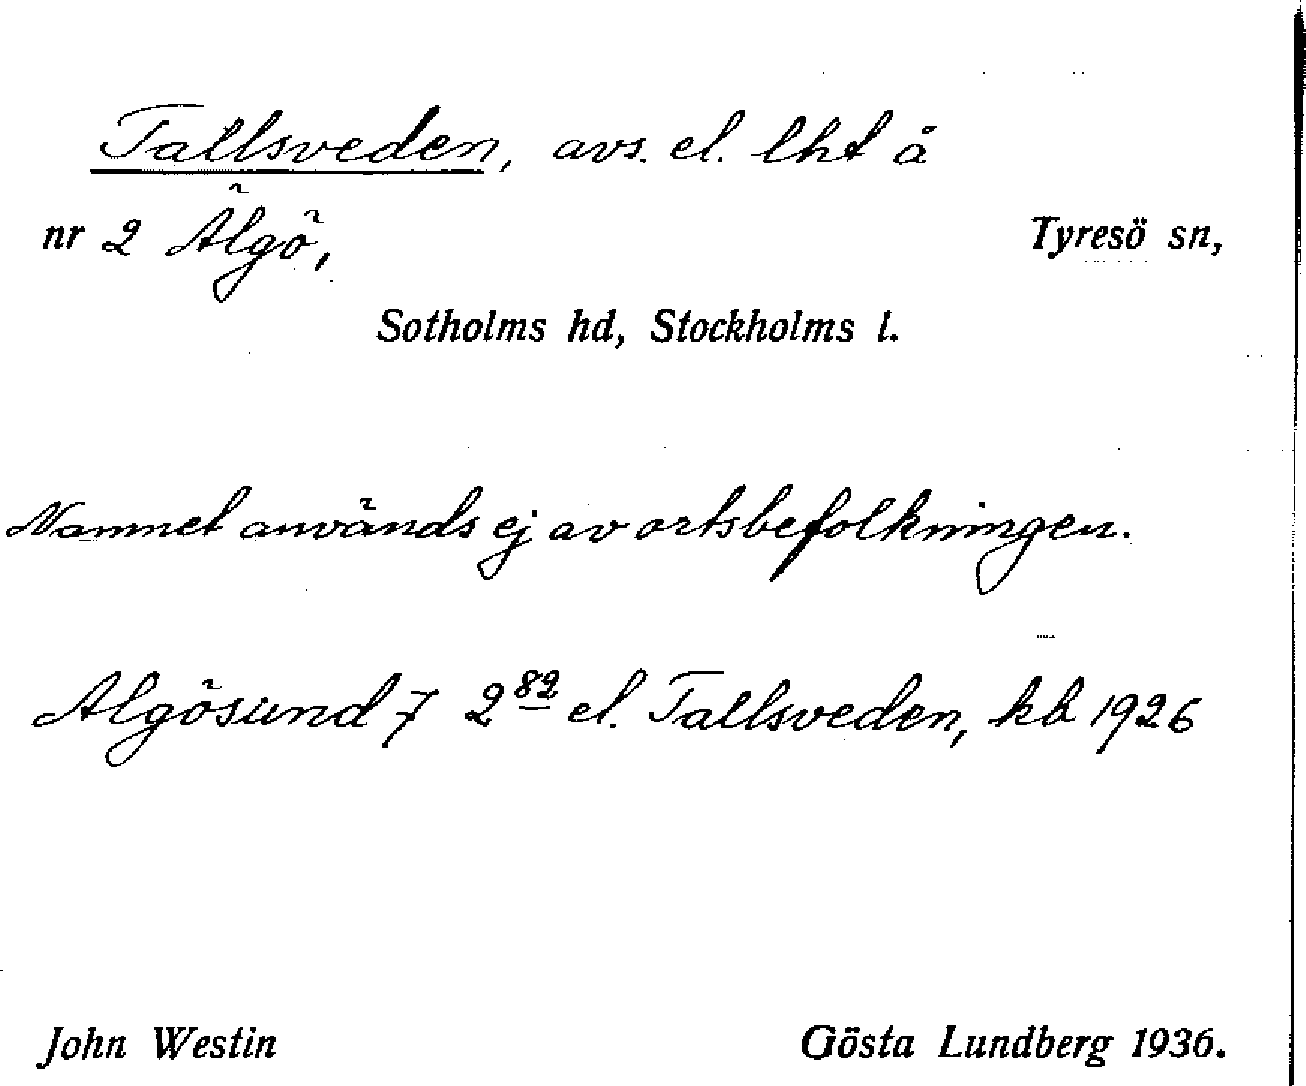 Tallsveden, avs. el. lht å
nr 2 Älgö, Tyresö sn,
Sotholms hd, Stockholms l.
Namnet används ej av ortsbefolkningen.
Algösund 7 2 82 el. Tallsveden, kb 1926
John Westin Gösta Lundberg 1936.